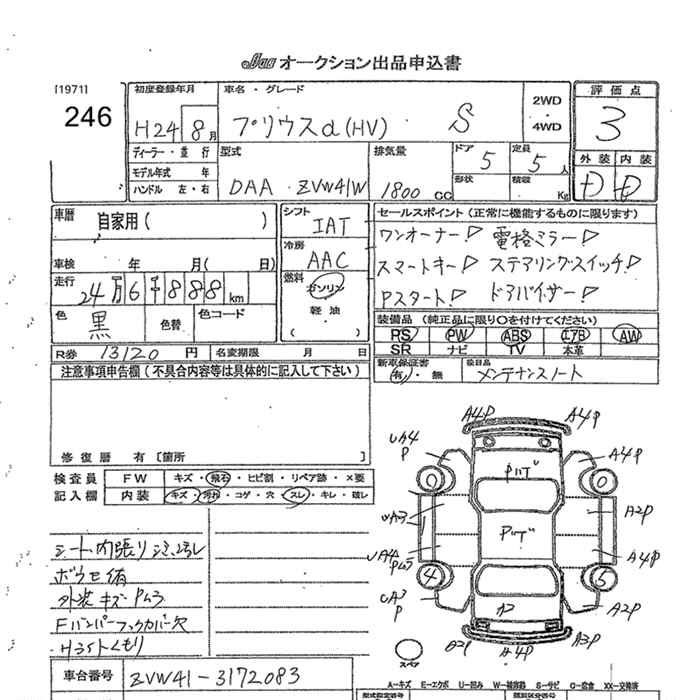 JAA オークション出品申込書
[1971]
246
初度登録年月
H24 8月
車名・グレード
プリウスα(HV) S
2WD
・
4WD
評価点
3
ディーラー・並行
モデル年式 年
ハンドル 左・右
型式
DAA ZVW41W
排気量
1800 CC
ドア
5
形状
定員
5人
積載
Kg
外装 内装
D D
車歴
自家用( )
シフト
IAT
セールスポイント(正常に機能するものに限ります)
ワンオーナー! 電格ミラー!
冷房
AAC
スマートキー! ステアリングスイッチ!
車検 年 月( 日)
走行
24万6千888km
燃料
ガソリン
・
軽油
( )
Pスタート! ドアバイザー!
色
黒
色替
色コード
装備品 (純正品に限り○を付けてください)
PS PW ABS エアB AW
SR ナビ TV 本革
R券 13120円
名変期限 月 日
新車保証書
有・無
後日品
メンテナンスノート
注意事項申告欄(不具合内容等は具体的に記入して下さい)
修復歴 有[箇所
検査員
記入欄
FW キズ・飛石・ヒビ割・リペア跡・×要
内装 キズ・汚れ・コゲ・穴・スレ・キレ・破レ
シート、内張りシミ、スレ
外装キズPムラ
Fバンパーフックカバー欠
H.ライトくもり
A4P A4P
UA4
P
A4P
PขT゛
UA3
A2P
UA4
Pムラ
A4P
4 5
UA3
P
A2P
A2
B2P A4P A3P
スペア
A-キズ E-エクボ U-凹み W-補修跡 S-サビ C-腐食 XX-交換済
車台番号 ZVW41-3172083